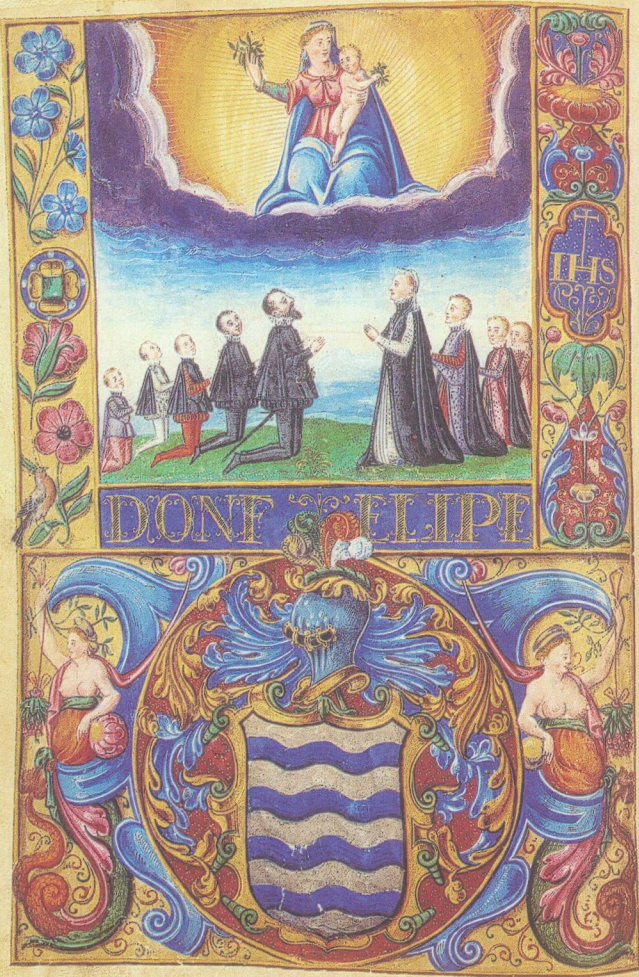 IHS
DON F ELIPE